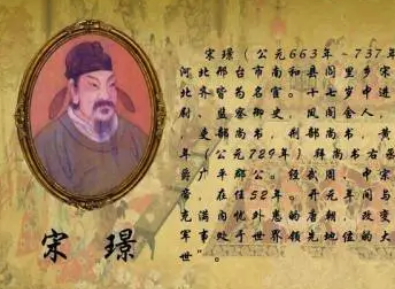 宋璟（公元663年-737年
河北邢台市南和县阎里乡宋
北齐皆为名宦。十七岁中进
尉、监察御史，凤阁舍人，
、吏部尚书，刑部尚书，黄
年（公元729年）拜尚书右丞
爵广平郡公。经武周、中宗
帝，在任52年。开元年间与
充满内忧外患的唐朝，改变
军事处于世界领先地位的大
世”。
宋 璟